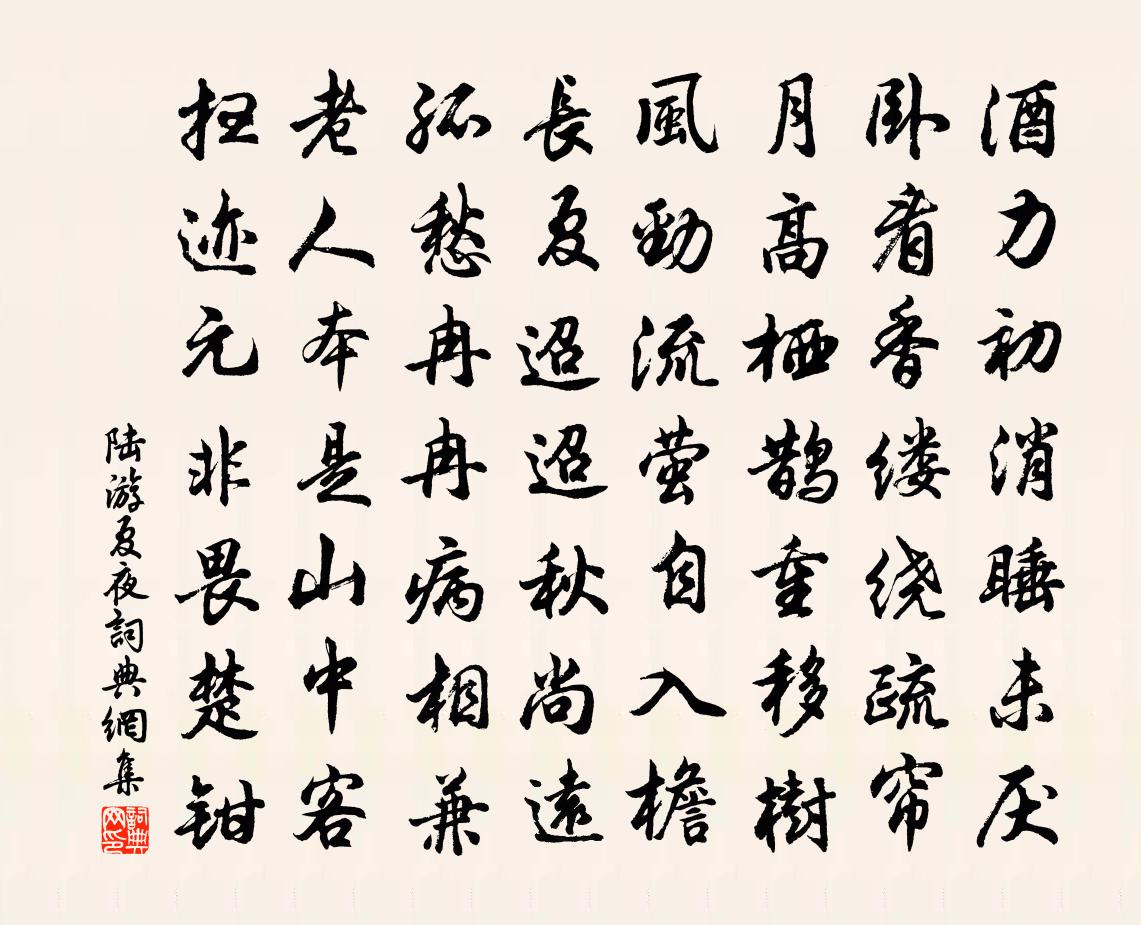 酒力初消睡未厌
卧看香缕绕疏帘
月高栖鹊重移樹
風勁流萤自入檐
長夏迢迢秋尚遠
孤愁冉冉病相兼
老人本是山中客
扫迹元非畏楚钳
陆游夏夜詞典網集
詞典网印